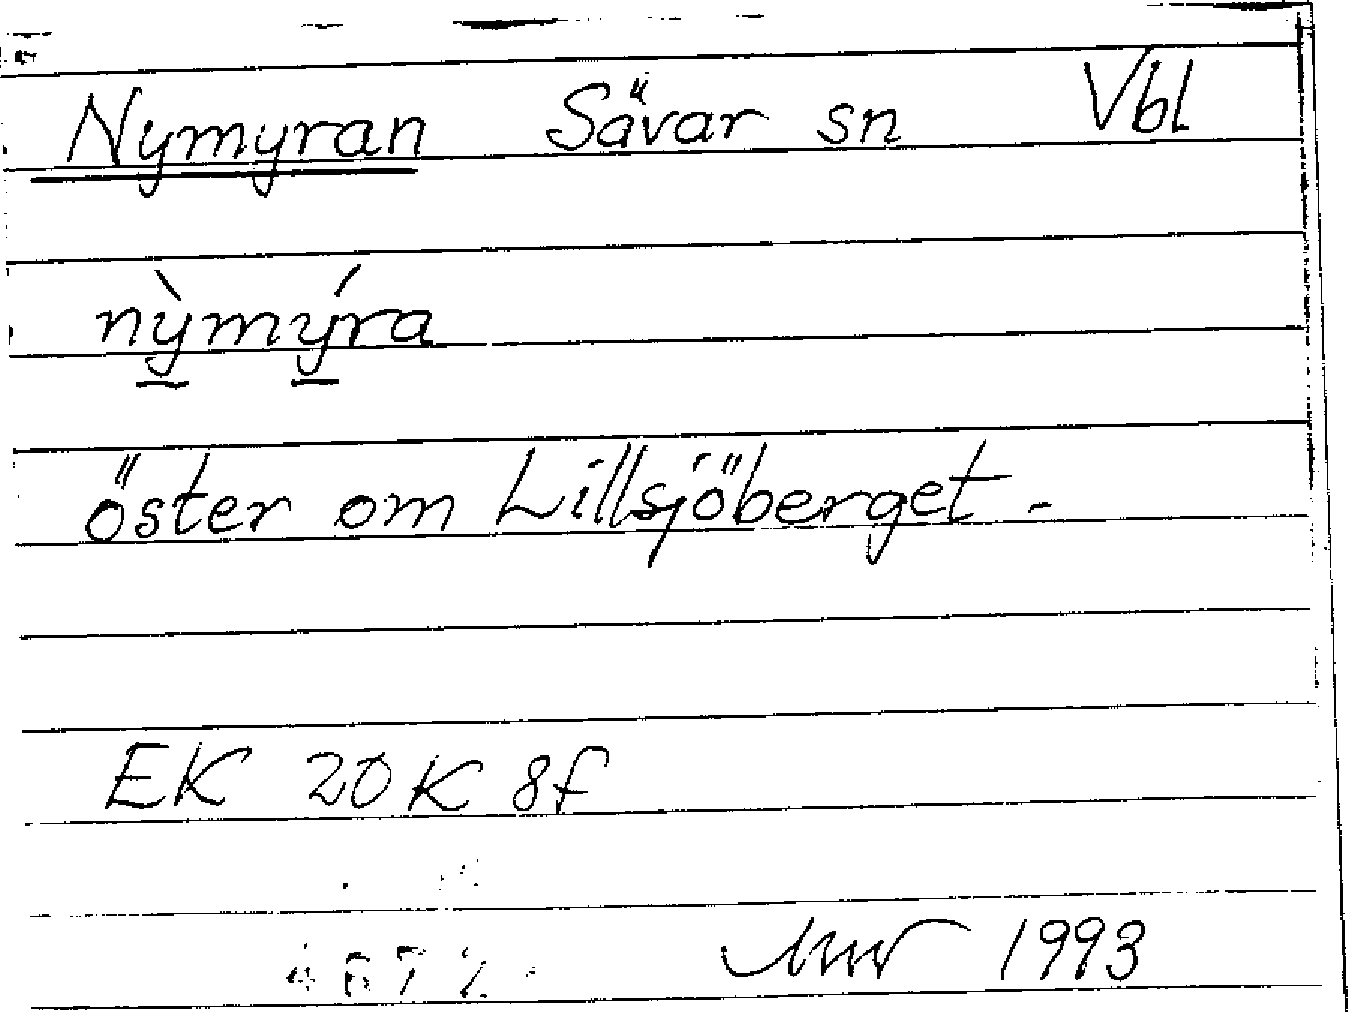 Nymyran Sävar sn Vbl
nỳmýra
öster om Lillsjöberget.
EK 20K 8f
1993